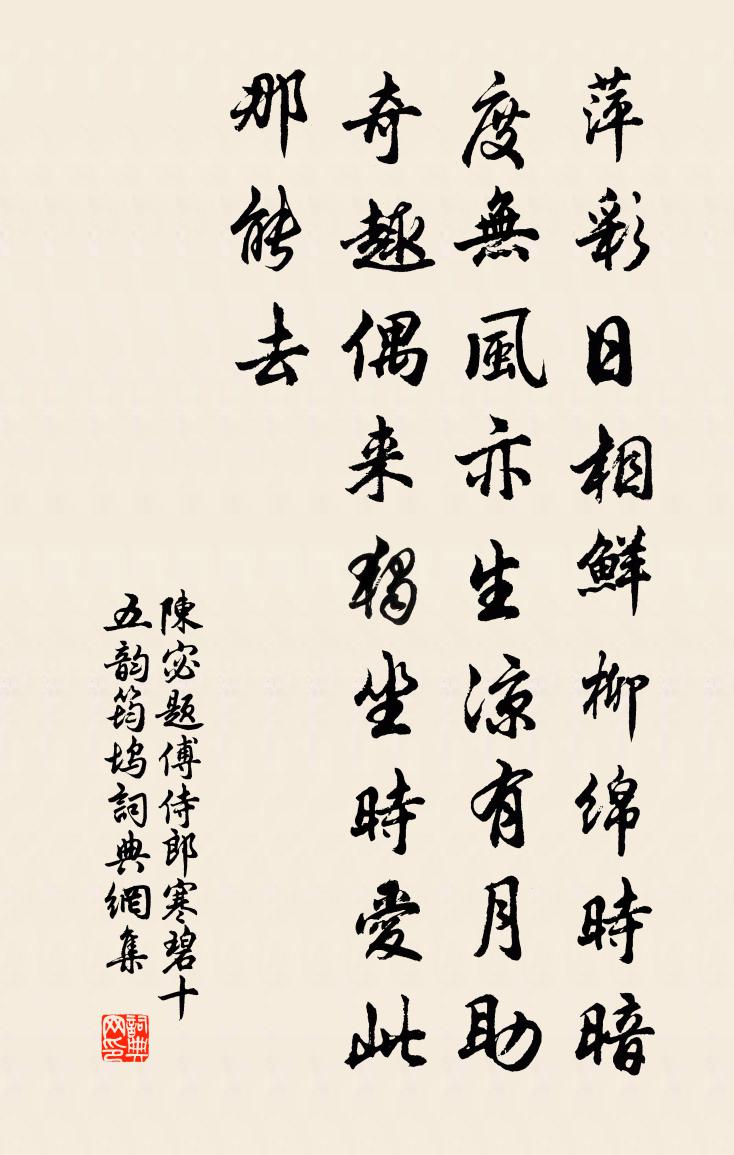 萍彩日相鮮柳綿時暗
度無風亦生涼有月助
奇趣偶来獨坐時愛此
那能去
陳宓題傅侍郎寒碧十
五韵筠塢詞典網集
詞典
网印